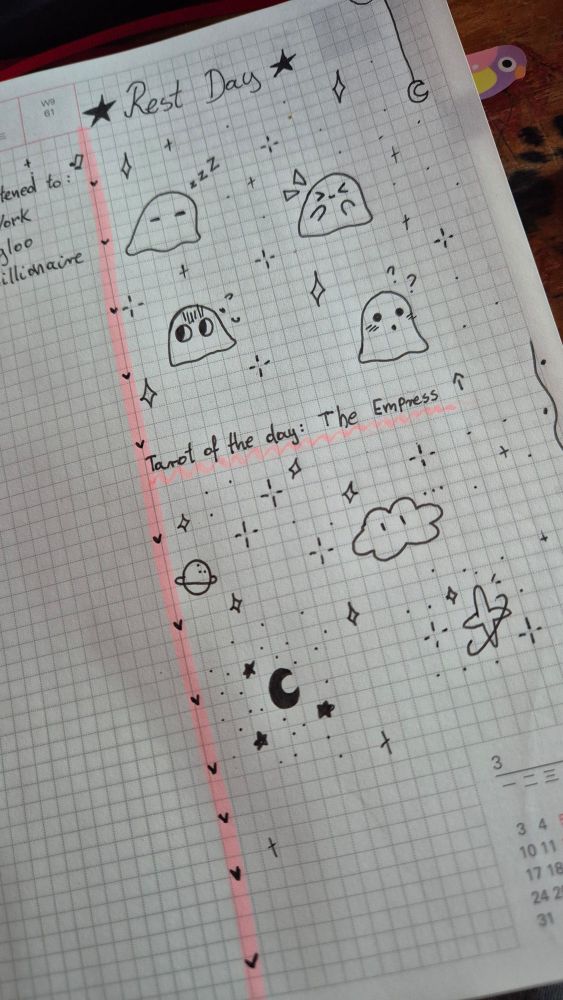 W9
61
Rest Day
tened to:
Work
gloo
illionaire
zzZ
? ?
? ?
Tarot of the day: The Empress ↑
3
一 二 三
3 4
10 11
17 18
24 25
31